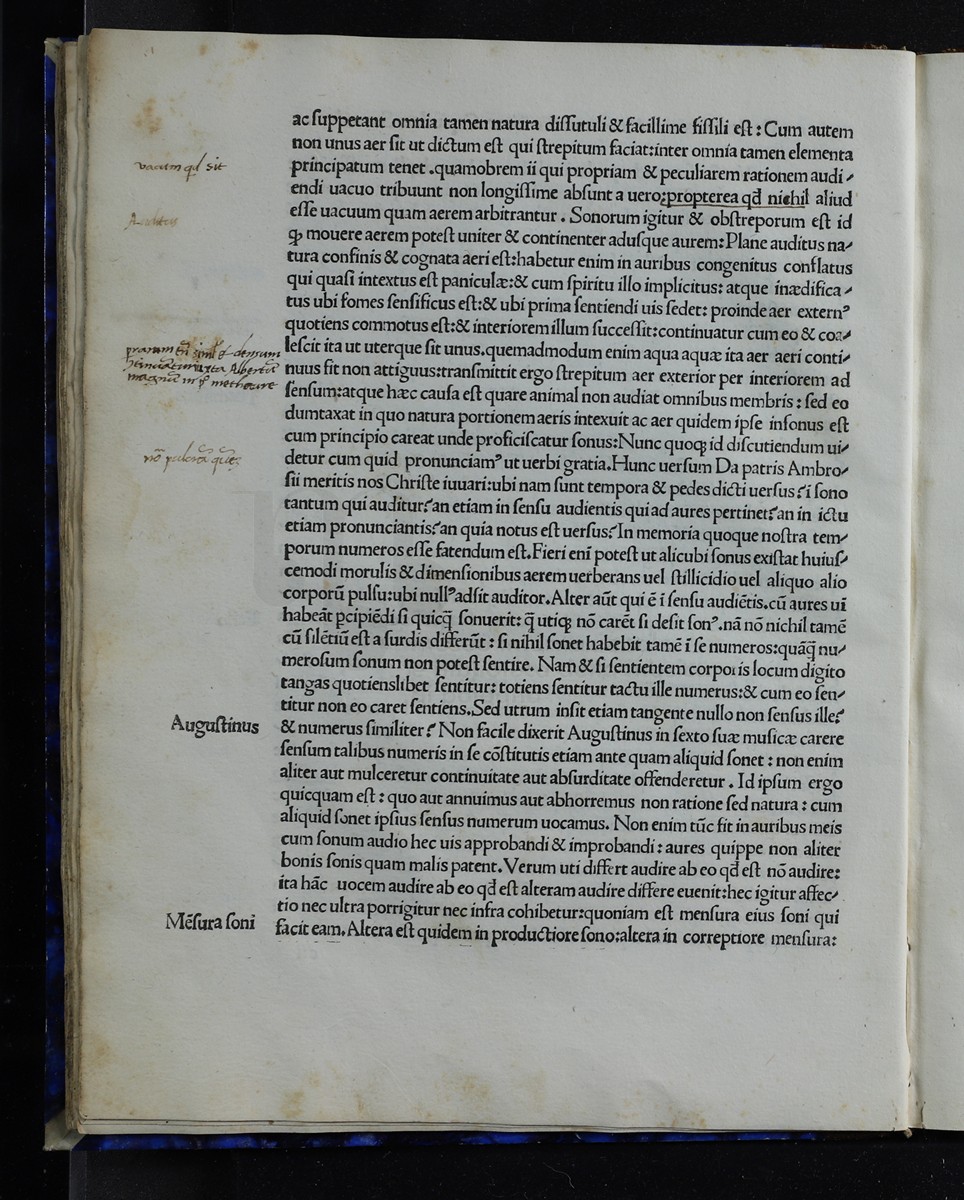 ac ſuppetant omnia tamen natura diſſutuli & facillime fiſſili eſt : Cum autem
non unus aer ſit ut dictum eſt qui ſtrepitum faciat:inter omnia tamen elementa
principatum tenet .quamobrem ii qui propriam & peculiarem rationem audi-
endi uacuo tribuunt non longiſſime abſunt a uero:propterea qđ nichil aliud
eſſe uacuum quam aerem arbitrantur . Sonorum igitur & obſtreporum eſt id
ꝙ mouere aerem poteſt uniter & continenter aduſque aurem: Plane auditus na-
tura confinis & cognata aeri eſt:habetur enim in auribus congenitus conflatus
qui quaſi intextus eſt paniculæ:& cum ſpiritu illo implicitus: atque inædifica-
tus ubi fomes ſenſificus eſt:& ubi prima ſentiendi uis ſedet: proinde aer externꝰ
quotiens commotus eſt:& interiorem illum ſucceſſit:continuatur cum eo & coa-
leſcit ita ut uterque ſit unus.quemadmodum enim aqua aquæ ita aer aeri conti-
nuus fit non attiguus:tranſmittit ergo ſtrepitum aer exterior per interiorem ad
ſenſum:atque hæc cauſa eſt quare animal non audiat omnibus membris : ſed eo
dumtaxat in quo natura portionem aeris intexuit ac aer quidem ipſe inſonus eſt
cum principio careat unde proficiſcatur ſonus:Nunc quoqꝫ id diſcutiendum ui-
detur cum quid pronunciamꝰ ut uerbi gratia.Hunc uerſum Da patris Ambro-
ſii meritis nos Chriſte iuuari:ubi nam ſunt tempora & pedes dicti uerſus? ī ſono
tantum qui auditur?an etiam in ſenſu audientis qui ad aures pertinet?an in ictu
etiam pronunciantis?an quia notus eſt uerſus?In memoria quoque noſtra tem-
porum numeros eſſe fatendum eſt.Fieri enī poteſt ut alicubi ſonus exiſtat huiuſ-
cemodi morulis & dimenſionibus aerem uerberans uel ſtillicidio uel aliquo alio
corporū pulſu:ubi nullꝰ adſit auditor.Alter aūt qui ē ī ſenſu audiētis.cū aures uī
habeāt ꝑcipiēdi ſi quicq̄ ſonuerit: q̄ utiqꝫ nō carēt ſi deſit ſonꝰ.nā nō nichil tamē
cū ſilētiū eſt a ſurdis differūt : ſi nihil ſonet habebit tamē ī ſe numeros:quāq̄ nu-
meroſum ſonum non poteſt ſentire. Nam & ſi ſentientem corporis locum digito
tangas quotienslibet ſentitur: totiens ſentitur tactu ille numerus:& cum eo ſen-
titur non eo caret ſentiens.Sed utrum inſit etiam tangente nullo non ſenſus ille?
Auguſtinus
& numerus ſimiliter? Non facile dixerit Auguſtinus in ſexto ſuæ muſicæ carere
ſenſum talibus numeris in ſe cōſtitutis etiam ante quam aliquid ſonet : non enim
aliter aut mulceretur continuitate aut abſurditate offenderetur . Id ipſum ergo
quicquam eſt : quo aut annuimus aut abhorremus non ratione ſed natura : cum
aliquid ſonet ipſius ſenſus numerum uocamus. Non enim tūc fit in auribus meis
cum ſonum audio hec uis approbandi & improbandi : aures quippe non aliter
bonis ſonis quam malis patent. Verum uti differt audire ab eo qđ eſt nō audire:
ita hāc uocem audire ab eo qđ eſt alteram audire differe euenit:hec igitur affec-
tio nec ultra porrigitur nec infra cohibetur:quoniam eſt menſura eius ſoni qui
Mēſura ſoni
facit eam. Altera eſt quidem in productiore ſono:altera in correptiore menſura: